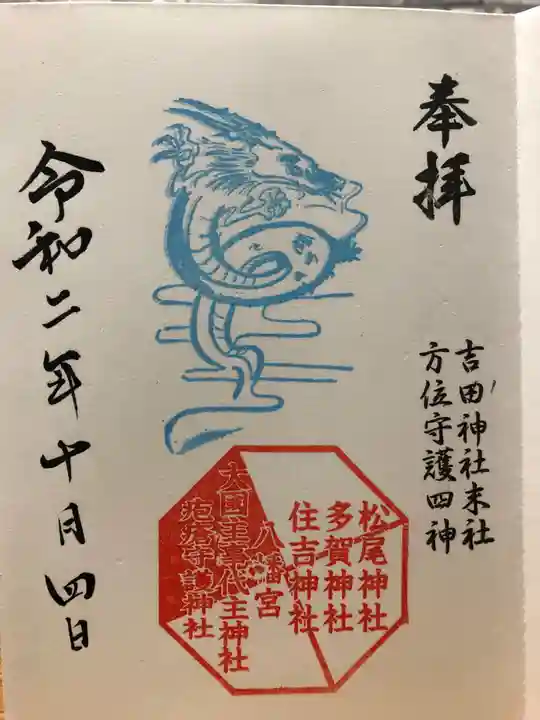 奉拝
吉田神社末社
方位守護四神
松尾神社
多賀神社
住吉神社
八幡宮
大国主事代主神社
疱瘡守護神社
令和二年十月四日